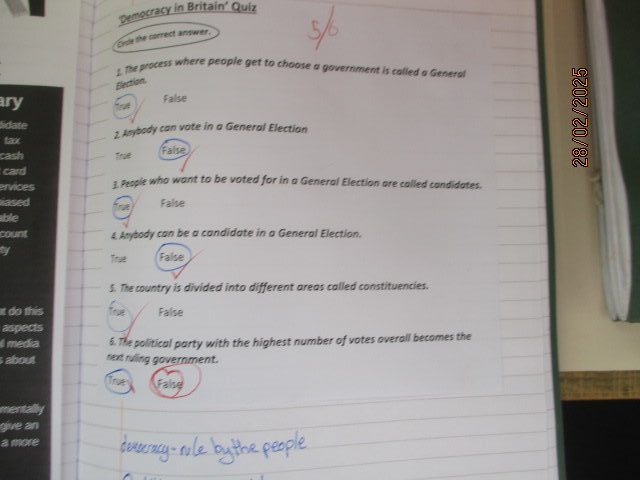 'Democracy in Britain' Quiz
5/6
Circle the correct answer.
1. The process where people get to choose a government is called a General
Election.
True False
2. Anybody can vote in a General Election
True False
3. People who want to be voted for in a General Election are called candidates.
True False
4. Anybody can be a candidate in a General Election.
True False
5. The country is divided into different areas called constituencies.
True False
6. The political party with the highest number of votes overall becomes the
next ruling government.
True False
democracy - rule by the people
ary
didate
tax
cash
card
ervices
biased
able
count
ty
t do this
aspects
l media
s about
mentally
give an
a more
28/02/2025